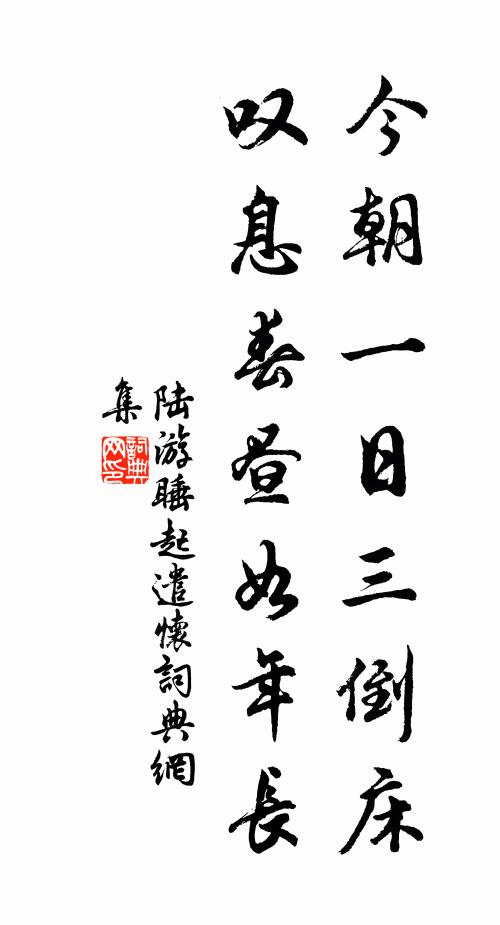 今朝一日三倒床
叹息春昼如年長
陆游睡起遣懷詞典網
集
詞典
网印